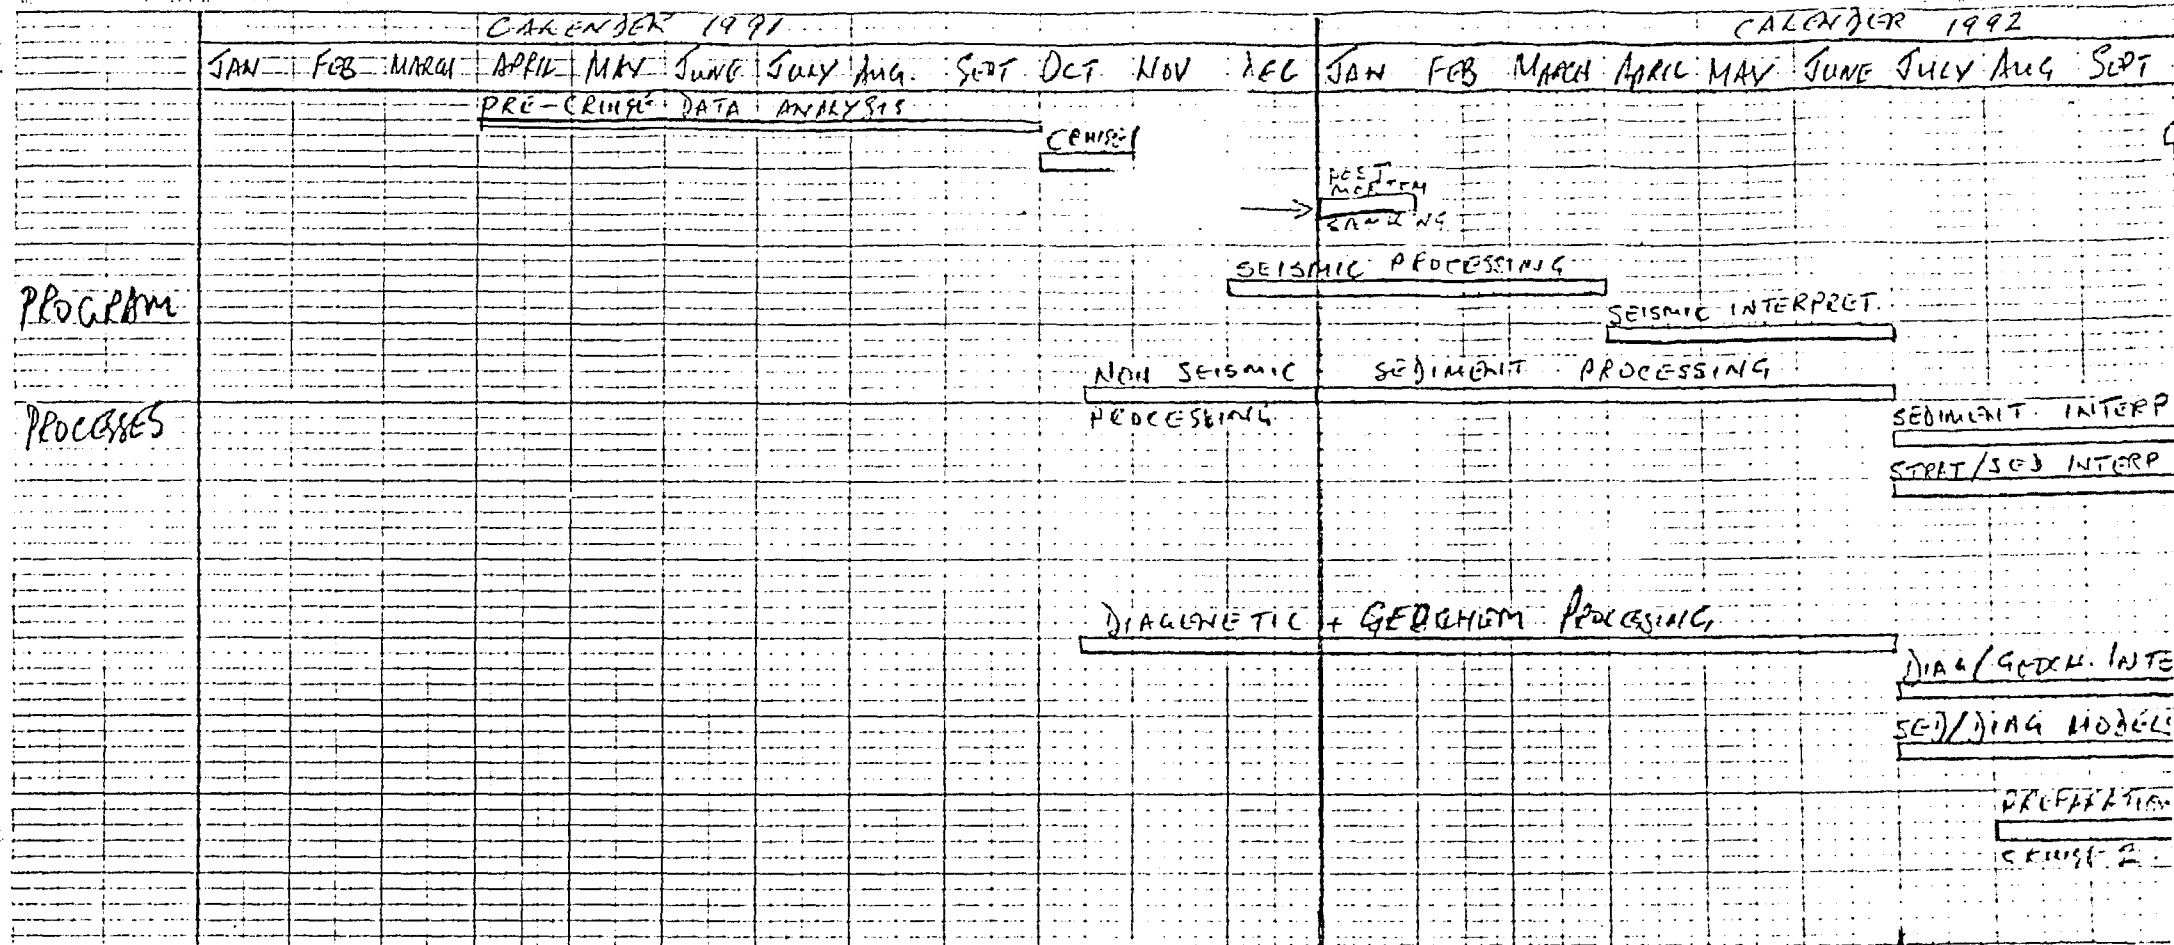 CALENDER 1991 CALENDER 1992
JAN FEB MARCH APRIL MAY JUNE JULY AUG. SEPT OCT NOV DEC JAN FEB MARCH APRIL MAY JUNE JULY AUG SEPT
PRE-CRUISE DATA ANALYSIS
CRUISE 1
POST
SAMPLING
SEISMIC PROCESSING
PROGRAM
SEISMIC INTERPRET.
NON SEISMIC SEDIMENT PROCESSING
PROCESSING
PROCESSES
SEDIMENT INTERP
STRAT/SED INTERP
DIAGENETIC + GEOCHEM PROCESSING
DIAG/GEOCH. INTE
SED/DIAG MODELS
PREPARATION
CRUISE 2